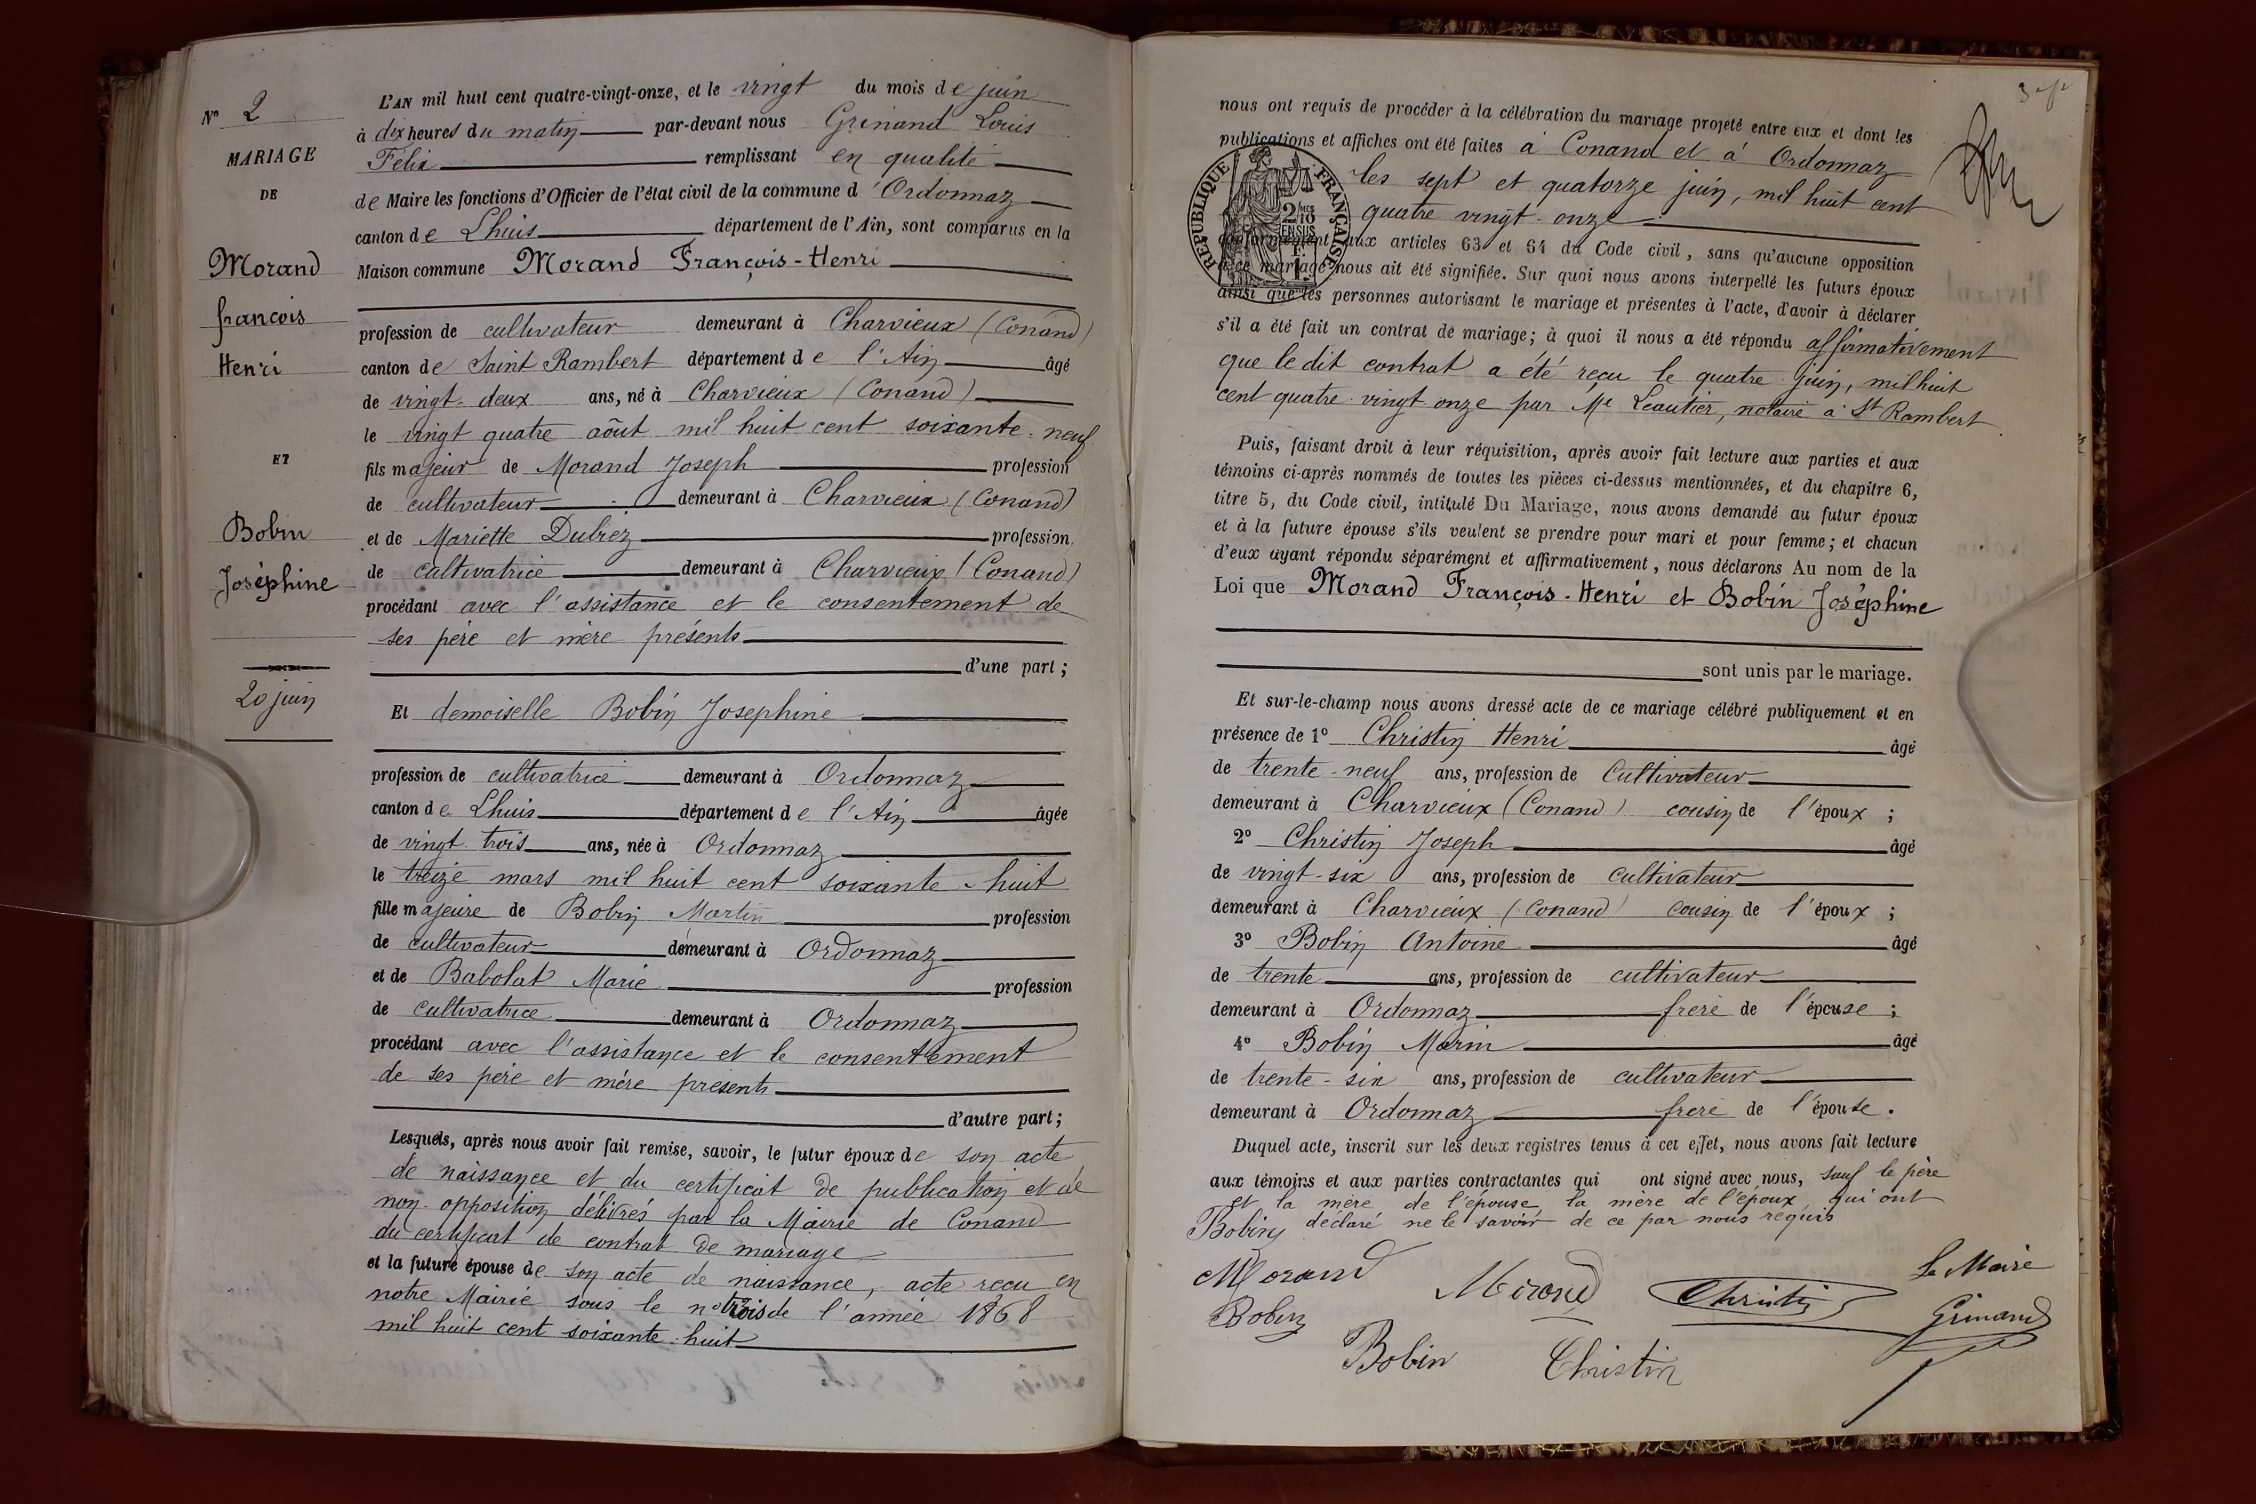 N° 2
MARIAGE
DE
Morand
françois
Henri
ET
Bobin
Joséphine
20 juin
L'AN mil huit cent quatre-vingt-onze, et le vingt du mois de juin
à dix heures du matin par-devant nous Grinand Louis
Félix remplissant en qualité
de Maire les fonctions d'Officier de l'état civil de la commune d'Ordonnaz
canton de Lhuis département de l'Ain, sont comparus en la
Maison commune Morand François-Henri
profession de cultivateur demeurant à Charvieux (Conand)
canton de Saint Rambert département de l'Ain âgé
de vingt-deux ans, né à Charvieux (Conand)
le vingt quatre août mil huit cent soixante-neuf
fils majeur de Morand Joseph profession
de cultivateur demeurant à Charvieux (Conand)
et de Mariette Dubrez profession
de cultivatrice demeurant à Charvieux (Conand)
procédant avec l'assistance et le consentement de
ses père et mère présents
d'une part;
Et demoiselle Bobin Josephine
profession de cultivatrice demeurant à Ordonnaz
canton de Lhuis département de l'Ain âgée
de vingt-trois ans, née à Ordonnaz
le treize mars mil huit cent soixante-huit
fille majeure de Bobin Martin profession
de cultivateur demeurant à Ordonnaz
et de Babolat Marie profession
de cultivatrice demeurant à Ordonnaz
procédant avec l'assistance et le consentement
de ses père et mère présents
d'autre part;
Lesquels, après nous avoir fait remise, savoir, le futur époux de son acte
de naissance et du certificat de publication et de
non-opposition délivrés par la Mairie de Conand
du certificat de contrat de mariage
et la future épouse de son acte de naissance, acte reçu en
notre Mairie sous le n° trois de l'année 1868
mil huit cent soixante-huit
nous ont requis de procéder à la célébration du mariage projeté entre eux et dont les
publications et affiches ont été faites à Conand et à Ordonnaz
les sept et quatorze juin, mil huit cent
quatre vingt-onze
conformément aux articles 63 et 64 du Code civil, sans qu'aucune opposition
à ce mariage nous ait été signifiée. Sur quoi nous avons interpellé les futurs époux
ainsi que les personnes autorisant le mariage et présentes à l'acte, d'avoir à déclarer
s'il a été fait un contrat de mariage; à quoi il nous a été répondu affirmativement
que le dit contrat a été reçu le quatre juin, mil huit
cent quatre-vingt onze par Me Leautier, notaire à St Rambert
RÉPUBLIQUE FRANÇAISE
2/10 MES
EN SUS
1 F.
Puis, faisant droit à leur réquisition, après avoir fait lecture aux parties et aux
témoins ci-après nommés de toutes les pièces ci-dessus mentionnées, et du chapitre 6,
titre 5, du Code civil, intitulé Du Mariage, nous avons demandé au futur époux
et à la future épouse s'ils veulent se prendre pour mari et pour femme; et chacun
d'eux ayant répondu séparément et affirmativement, nous déclarons Au nom de la
Loi que Morand François-Henri et Bobin Joséphine
sont unis par le mariage.
Et sur-le-champ nous avons dressé acte de ce mariage célébré publiquement et en
présence de 1° Christin Henri âgé
de trente-neuf ans, profession de Cultivateur
demeurant à Charvieux (Conand) cousin de l'époux;
2° Christin Joseph âgé
de vingt-six ans, profession de cultivateur
demeurant à Charvieux (Conand) cousin de l'époux;
3° Bobin Antoine âgé
de trente ans, profession de cultivateur
demeurant à Ordonnaz frère de l'épouse;
4° Bobin Marin âgé
de trente-six ans, profession de cultivateur
demeurant à Ordonnaz frère de l'épouse.
Duquel acte, inscrit sur les deux registres tenus à cet effet, nous avons fait lecture
aux témoins et aux parties contractantes qui ont signé avec nous, sauf le père
et la mère de l'épouse, la mère de l'époux qui ont
déclaré ne le savoir de ce par nous requis
Bobin
Morand
Morand
Christin
Le Maire
Grinand
Bobin
Bobin
Christin